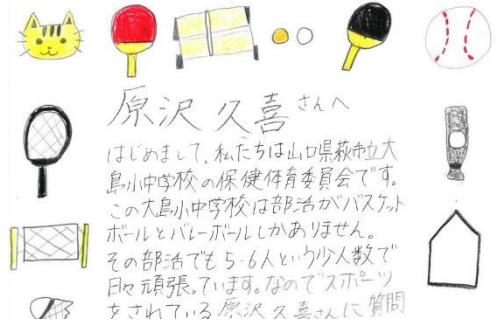 原沢 久喜さんへ
はじめまして、私たちは山口県萩市立大
島小中学校の保健体育委員会です。
この大島小中学校は部活がバスケット
ボールとバレーボールしかありません。
その部活でも5・6人という少人数で
日々頑張っています。なのでスポーツ
をされている原沢 久喜さんに質問